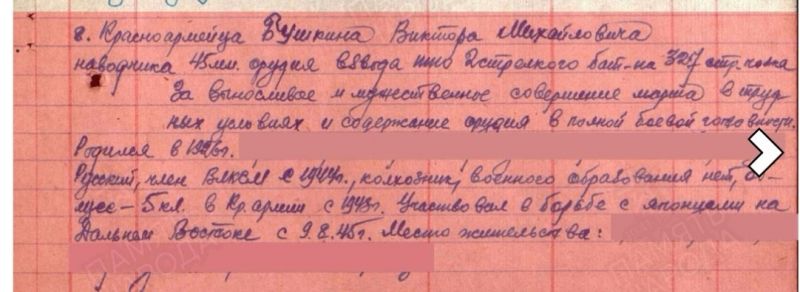 8. Красноармейца Бушкина Виктора Михайловича
наводчика 45 мм. орудия взвода пто 2 стрелкого бат-на 327 стр. полка
За выносливое и мужественное совершение марша в труд
ных условиях и содержание орудия в полной боевой готовности.
Родился в 1926г.
Русский, член ВЛКСМ с 1944г., колхозник, военного образования нет, об-
щее – 5 кл. в Кр. армии с 1943г. Участвовал в борьбе с японцами на
Дальнем Востоке с 9.8.45г. Место жительства: